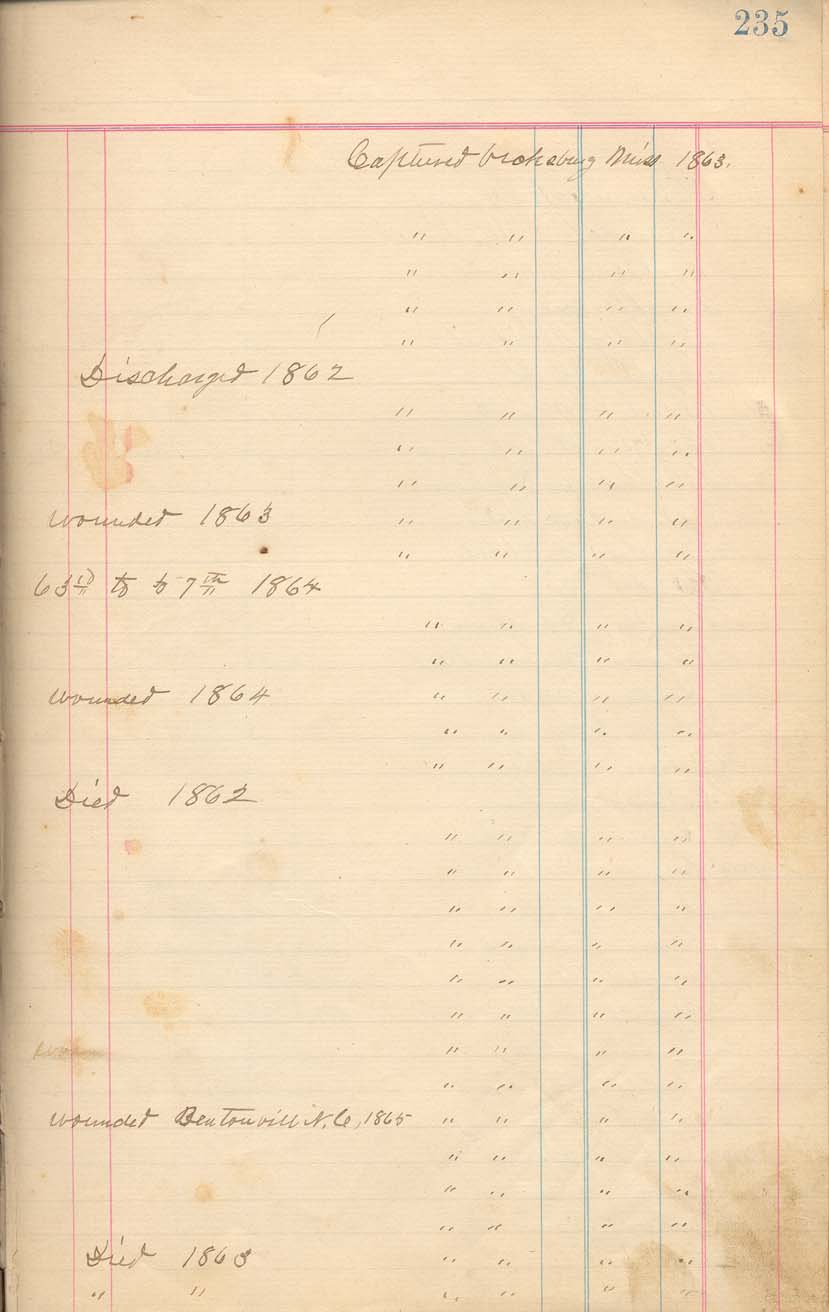 235
Captured Vicksburg Miss 1863.
" " " "
" " " "
" " " "
" " " "
Discharged 1862
" " " "
" " " "
" " " "
wounded 1863 " " " "
" " " "
63rd to to 7th 1864
" " " "
" " " "
wounded 1864 " " " "
" " " "
" " " "
Died 1862
" " " "
" " " "
" " " "
" " " "
" " " "
" " " "
" " " "
" " " "
wounded Bentonvill N.C, 1865 " " " "
" " " "
" " " "
" " " "
Died 1863 " " " "
" " " " " "